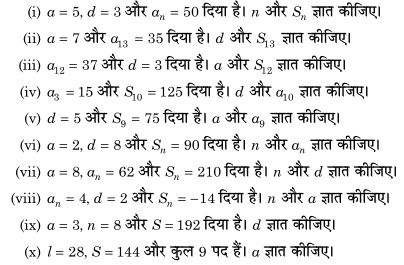 (i) a = 5, d = 3 और aₙ = 50 दिया है। n और Sₙ ज्ञात कीजिए।
(ii) a = 7 और a₁₃ = 35 दिया है। d और S₁₃ ज्ञात कीजिए।
(iii) a₁₂ = 37 और d = 3 दिया है। a और S₁₂ ज्ञात कीजिए।
(iv) a₃ = 15 और S₁₀ = 125 दिया है। d और a₁₀ ज्ञात कीजिए।
(v) d = 5 और S₉ = 75 दिया है। a और a₉ ज्ञात कीजिए।
(vi) a = 2, d = 8 और Sₙ = 90 दिया है। n और aₙ ज्ञात कीजिए।
(vii) a = 8, aₙ = 62 और Sₙ = 210 दिया है। n और d ज्ञात कीजिए।
(viii) aₙ = 4, d = 2 और Sₙ = –14 दिया है। n और a ज्ञात कीजिए।
(ix) a = 3, n = 8 और S = 192 दिया है। d ज्ञात कीजिए।
(x) l = 28, S = 144 और कुल 9 पद हैं। a ज्ञात कीजिए।